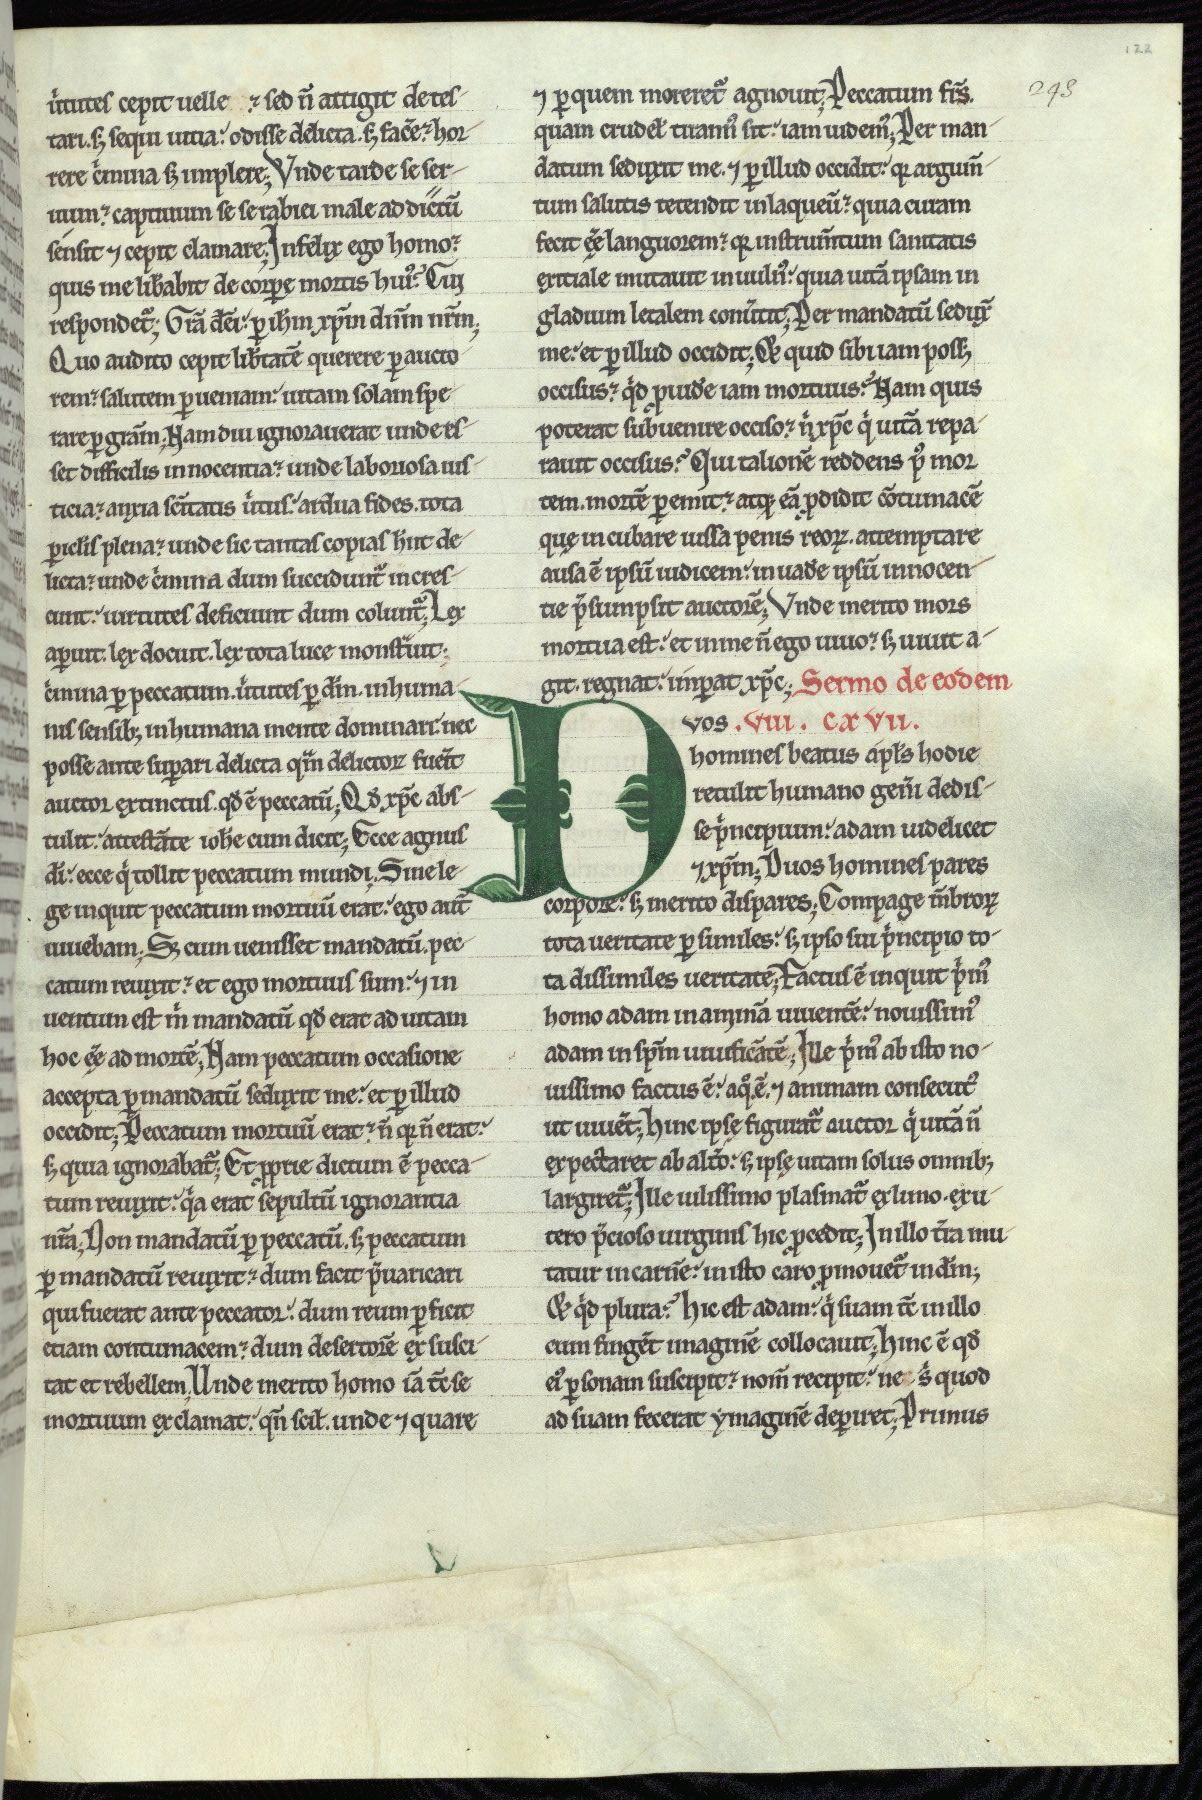 122
293
ũtutes cepit uelle ⁊ sed ñ attigit detes-
tari. sꝫ sequi uitia: odisse delicta. sꝫ facẽ: hor-
rere c̾mina sꝫ implere; Vnde tarde se ser-
uum: captiuum se se rabiei male ad dictũ
sensit ⁊ cepit clamare; Infelix ego homo:
quis me lib̾abit de corpe mortis hui᷒: Cui
respondet᷑; Grã dei: ꝑ ihm xp̃m dñm nr̃m;
Quo audito cepit lib̾tatẽ querere ꝑ aucto-
rem: salutem ꝑ ueniam: uitam solam spe-
rare ꝑ gr̃am; Nam diu ignorauerat unde es-
set difficilis innocentia: unde laboriosa ius-
ticia: anxia sc̃itatis ũtus: ardua fides. tota
ꝑiclis plena: unde sic tantas copias hñt de-
licta: unde c̾mina dum succidunt᷑ incres-
cunt: uirtutes deficiunt dum colunt᷑; Lex
aꝑuit. lex docuit. lex tota luce monst̾uit:
c̾mina ꝑ peccatum. ũtutes ꝑ dm̃. in huma-
nis sensibꝫ in humana mente dominari: nec
posse ante suꝑari delicta qm̃ delictoꝝ fuẽit
auctor extinctus. qđ ẽ peccatũ; Qđ xp̃c abs-
tulit: attestãte iohe cum dicit; Ecce agnus
di: ecce q̾ tollit peccatum mundi; Sine le-
ge inquit peccatum mortuũ erat: ego aut̃
uiuebam; Sꝫ cum uenisset mandatũ. pec-
catum reuixit: et ego mortuus sum: ⁊ in
uentum est m̾ mandatũ qđ erat ad uitam
hoc ẽe ad mortẽ; Nam peccatum occasione
accepta ꝑ mandatũ seduxit me: et ꝑ illud
occidit; Peccatum mortuũ erat: ñ qꝛ ñ erat:
sꝫ quia ignorabat᷑; Et ꝓprie dictum ẽ pecca-
tum reuixit: q̾a erat sepultũ ignorancia
nr̃a; Non mandatũ ꝑ peccatũ. sꝫ peccatum
ꝑ mandatũ reuixit: dum facit p̃uaricari
qui fuerat ante peccator: dum reum ꝑficit
etiam contumacem: dum desertorẽ ex susci-
tat et rebellem; Unde merito homo iã tc̃ se
mortuum exclamat: qñ scil. unde ⁊ quare
⁊ ꝑ quem moreret᷑ agnouit; Peccatum frs̃.
quam crudel̾ tirann᷒ sit: iam uidem᷒; Per man-
datum seduxit me. ⁊ ꝑ illud occidit: qꝛ argum̃-
tum salutis tetendit in laqueũ: quia curam
fecit ẽe languorem: qꝛ instrum̃tum sanitatis
exitiale mutauit in uuln᷒: quia uitã ipsam in
gladium letalem con̾tit; Per mandatũ sedux̃
me: et ꝑ illud occidit; Et quid sibi iam possꝫ
occisus: q̾d ꝓuide iam mortuus: Nam quis
poterat subuenire occiso: n̾ xp̃c q̾ uitã repa-
rauit occisus: Qui talionẽ reddens ꝓ mor
tem. mortẽ ꝑemit: atqꝫ eã ꝓdidit cõtumacẽ
que incubare iussa penis reoꝝ. attemptare
ausa ẽ ipsũ iudicem: inuade ipsũ innocen-
tie p̃sumpsit auctorẽ; Vnde merito mors
mortua est: et in me ñ ego uiuo: sꝫ uiuit a-
git. regnat: imꝑat xp̃c; Sermo de eodem
D
vos .viii. cxvii.
homines beatus apłs hodie
retulit humano gen̾i dedis-
se p̾ncipium: adam uidelicet
⁊ xp̃m; Duos homines pares
corpore: sꝫ merito dispares; Compage m̃broꝝ
tota ueritate ꝑ similes: sꝫ ipso sui p̾ncipio to-
ta dissimiles ueritate; Factus ẽ inquit p̾m᷒
homo adam in animã uiuentẽ: nouissim᷒
adam in sp̃m uiuificãtẽ; Ille p̾m᷒ ab isto no-
uissimo factus ẽ: aq̊ ẽ. ⁊ animam consecut᷒
ut uiuẽt; Hinc ipse figurat᷑ auctor q̾ uitã ñ
expectaret ab alt̾o: sꝫ ipse uitam solus omnibꝫ
largiret᷑; Ille uilissimo plasmat᷑ ex limo. ex u-
tero p̃cioso uirginis hic ꝓcedit; In illo tr̃a mu-
tatur in carnẽ: in isto caro ꝓmouet᷑ in dm̃;
Et q̾d plura: Hic est adam: q̾ suam tc̃ in illo
cum fingẽt imaginẽ collocauit; Hinc ẽ qđ
ei᷒ ꝑsonam suscipit: nom̃ recipit: ne s̾ quod
ad suam fecerat ymaginẽ deꝑiret; Primus